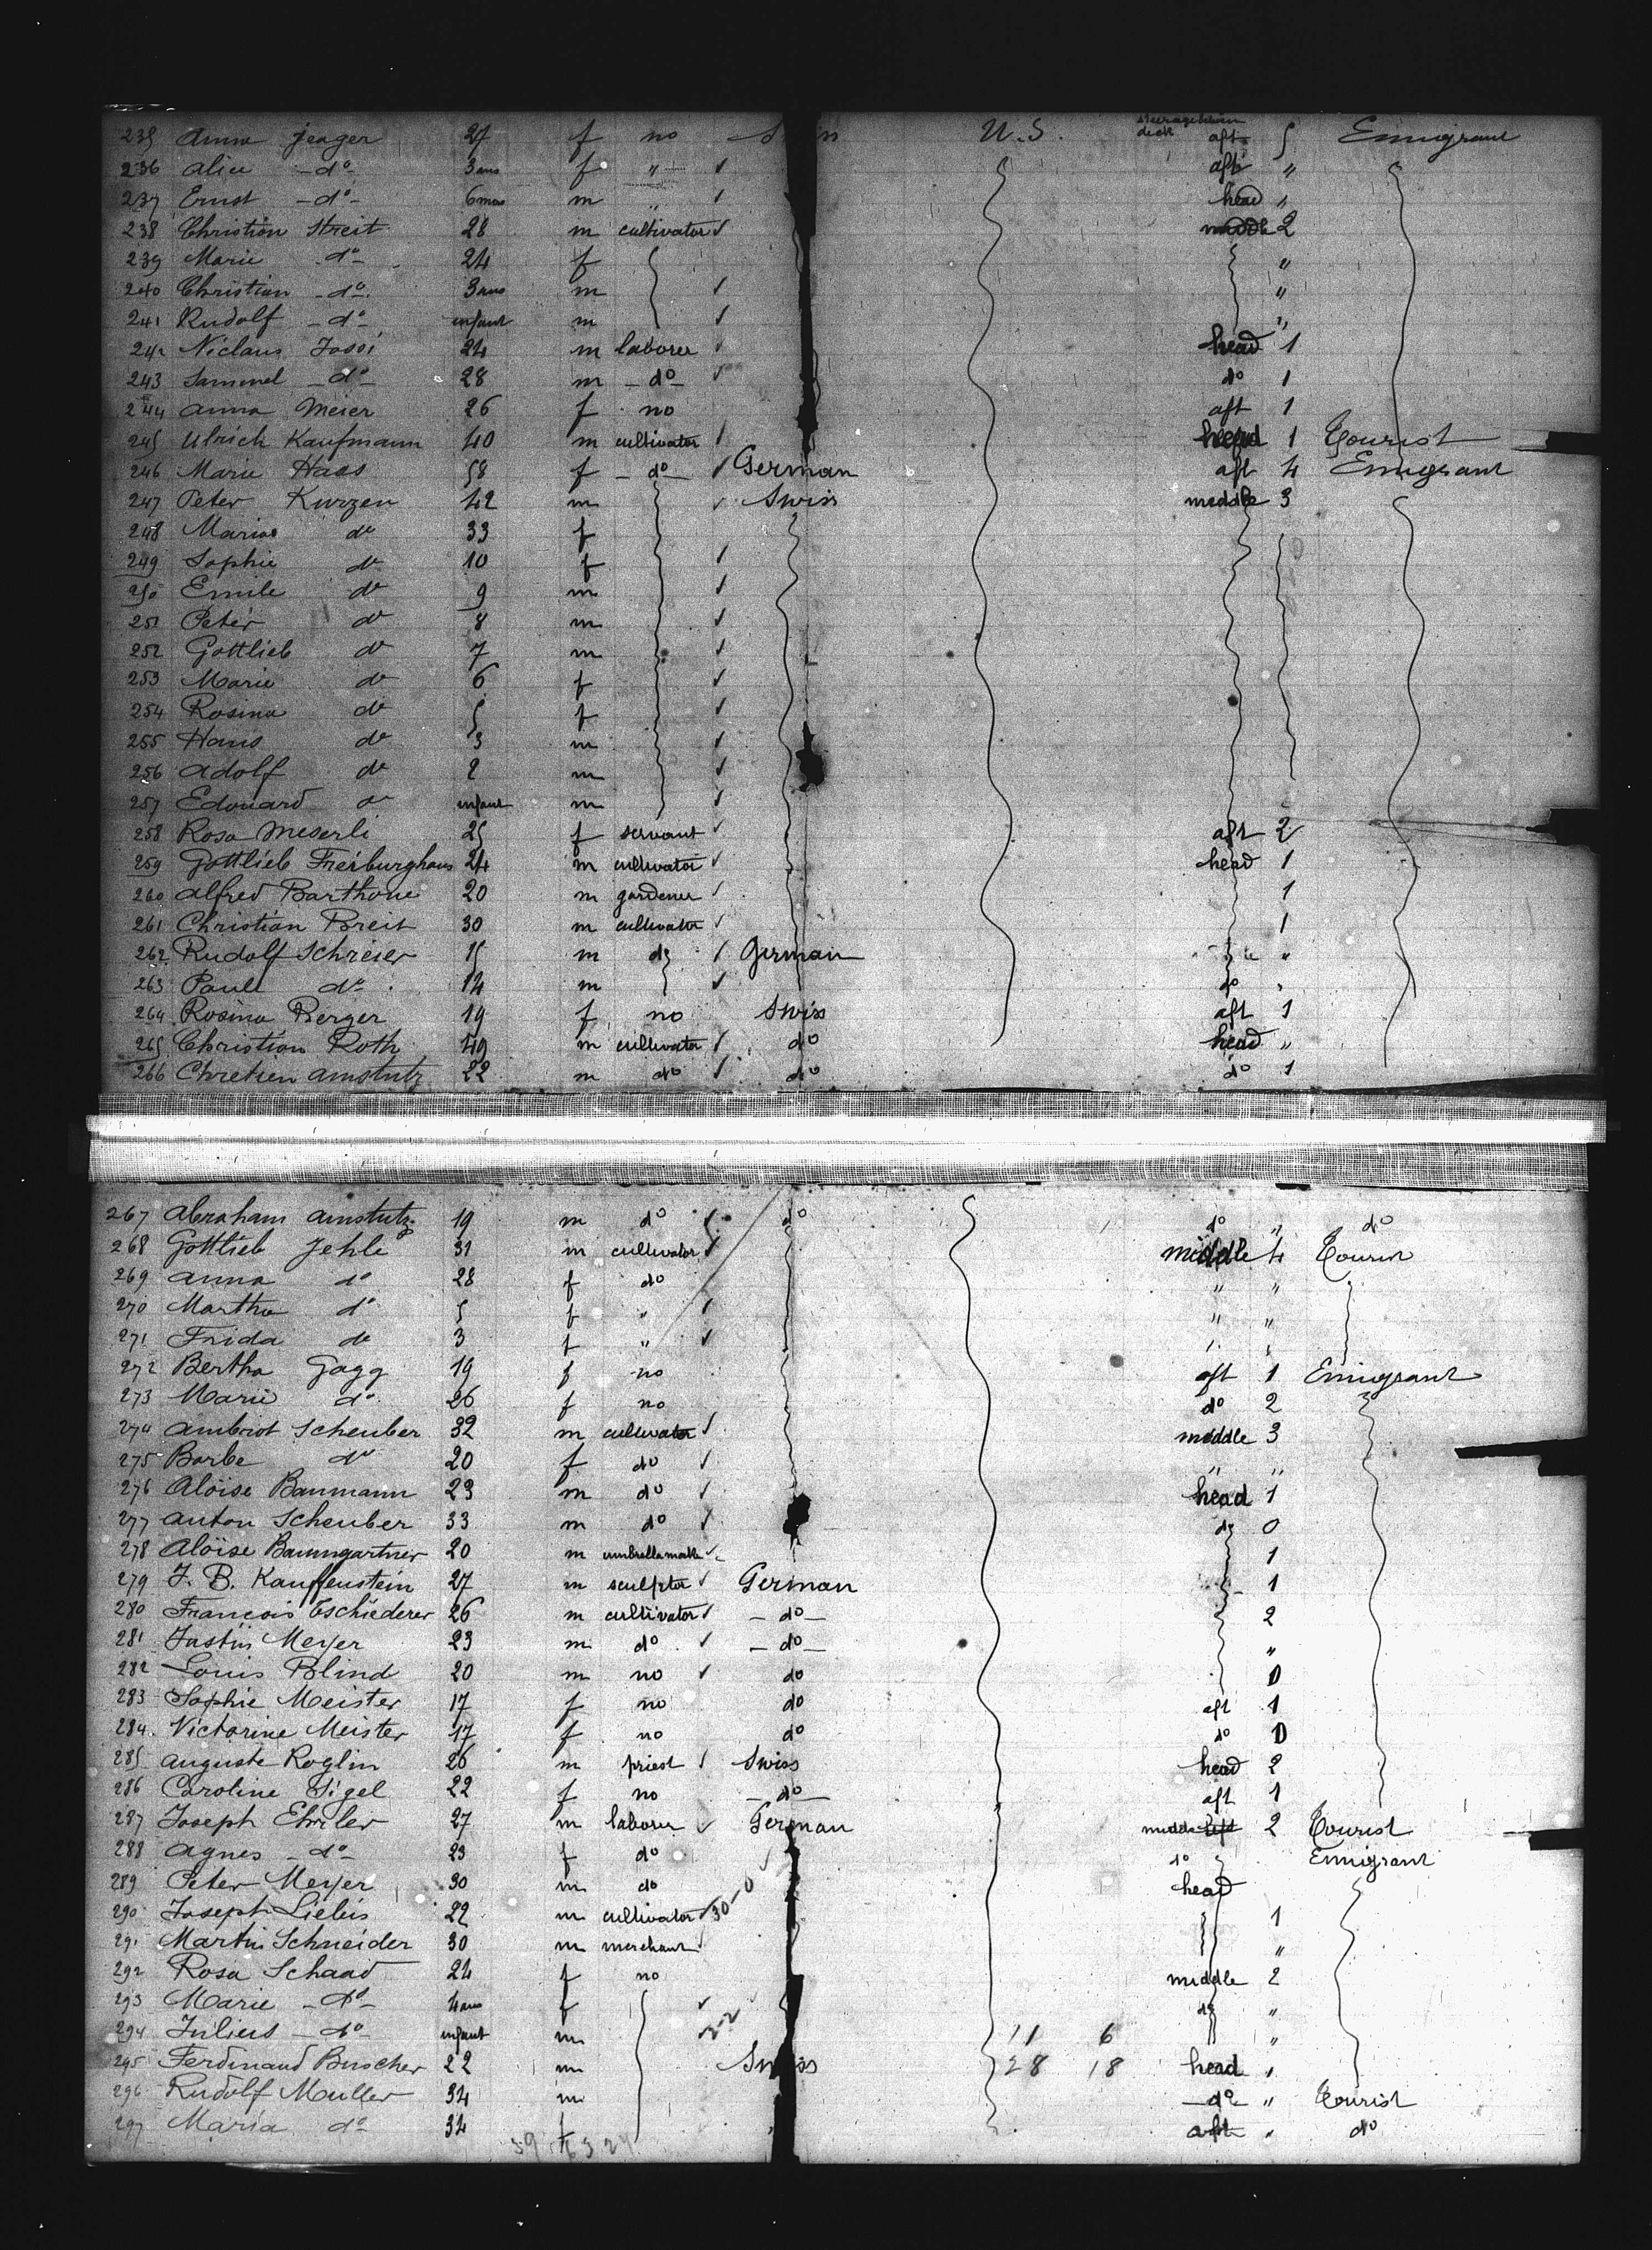 235 Anna Jeager 27 f no U.S. steerage deck aft 5 Emigrant
236 Alice - do - 3 ans f " aft "
237 Ernst - do - 6 mos m " head "
238 Christian Streit 28 m cultivator middle 2
239 Marie do - 24 f "
240 Christian - do. 3 ans m "
241 Rudolf - do - infant m "
242 Niclaus Jossi 24 m laborer head 1
243 Sammel - do - 28 m - do - do 1
244 Anna Meier 26 f no aft 1
245 Ulrich Kaufmann 40 m cultivator head 1 Tourist
246 Marie Haas 58 f - do - German aft 4 Emigrant
247 Peter Kurzen 42 m Swiss middle 3
248 Maria do 33 f
249 Sophie do 10 f
250 Emile do 9 m
251 Peter do 8 m
252 Gottlieb do 7 m
253 Marie do 6 f
254 Rosina do 5 f
255 Hans do 3 m
256 Adolf do 2 m
257 Edouard do infant m
258 Rosa Meserli 25 f servant aft 2
259 Gottlieb Freiburghaus 24 m cultivator head 1
260 Alfred Barthoue 20 m gardener 1
261 Christian Breit 30 m cultivator 1
262 Rudolf Schreier 15 m do German "
263 Paull do 14 m do "
264 Rosina Berger 19 f no Swiss aft 1
265 Christian Roth 49 m cultivator do head "
266 Chretien Amstutz 22 m do do do 1
267 Abraham Amstutz 19 m do do do " do
268 Gottlieb Jehle 31 m cultivator middle 4 Tourist
269 Anna do 28 f do " "
270 Martha do 5 f " " "
271 Frida do 3 f " " "
272 Bertha Gagg 19 f no aft 1 Emigrant
273 Marie do 26 f no do 2
274 Ambrost Scheuber 32 m cultivator middle 3
275 Barbe do 20 f do " "
276 Aloïse Baumann 23 m do head 1
277 Anton Scheuber 33 m do do 0
278 Aloïse Baumgartner 20 m 1
279 J. B. Kauffenstein 27 m sculptor German 1
280 François Eschiederer 26 m cultivator - do - 2
281 Justin Meyer 23 m do - do - "
282 Louis Blind 20 m no do 0
283 Sophie Meister 17 f no do aft 1
284 Victorine Meister 17 f no do do 0
285 Auguste Roglin 26 m priest Swiss head 2
286 Caroline Sigel 22 f no - do - aft 1
287 Joseph Ehrler 27 m laborer German middle 2 Tourist
288 Agnes - do - 23 f do do Emigrant
289 Peter Meyer 30 m do head
290 Joseph Liebis 22 m cultivator 30-0 1
291 Martin Schneider 30 m merchant "
292 Rosa Schaad 24 f no middle 2
293 Marie - do - 4 ans f do "
294 Julius - do - infant m 2-2 11 6 "
295 Ferdinand Buscher 22 m Swiss 28 18 head "
296 Rudolf Muller 34 m - do - " Tourist
297 Maria do 34 f aft " do